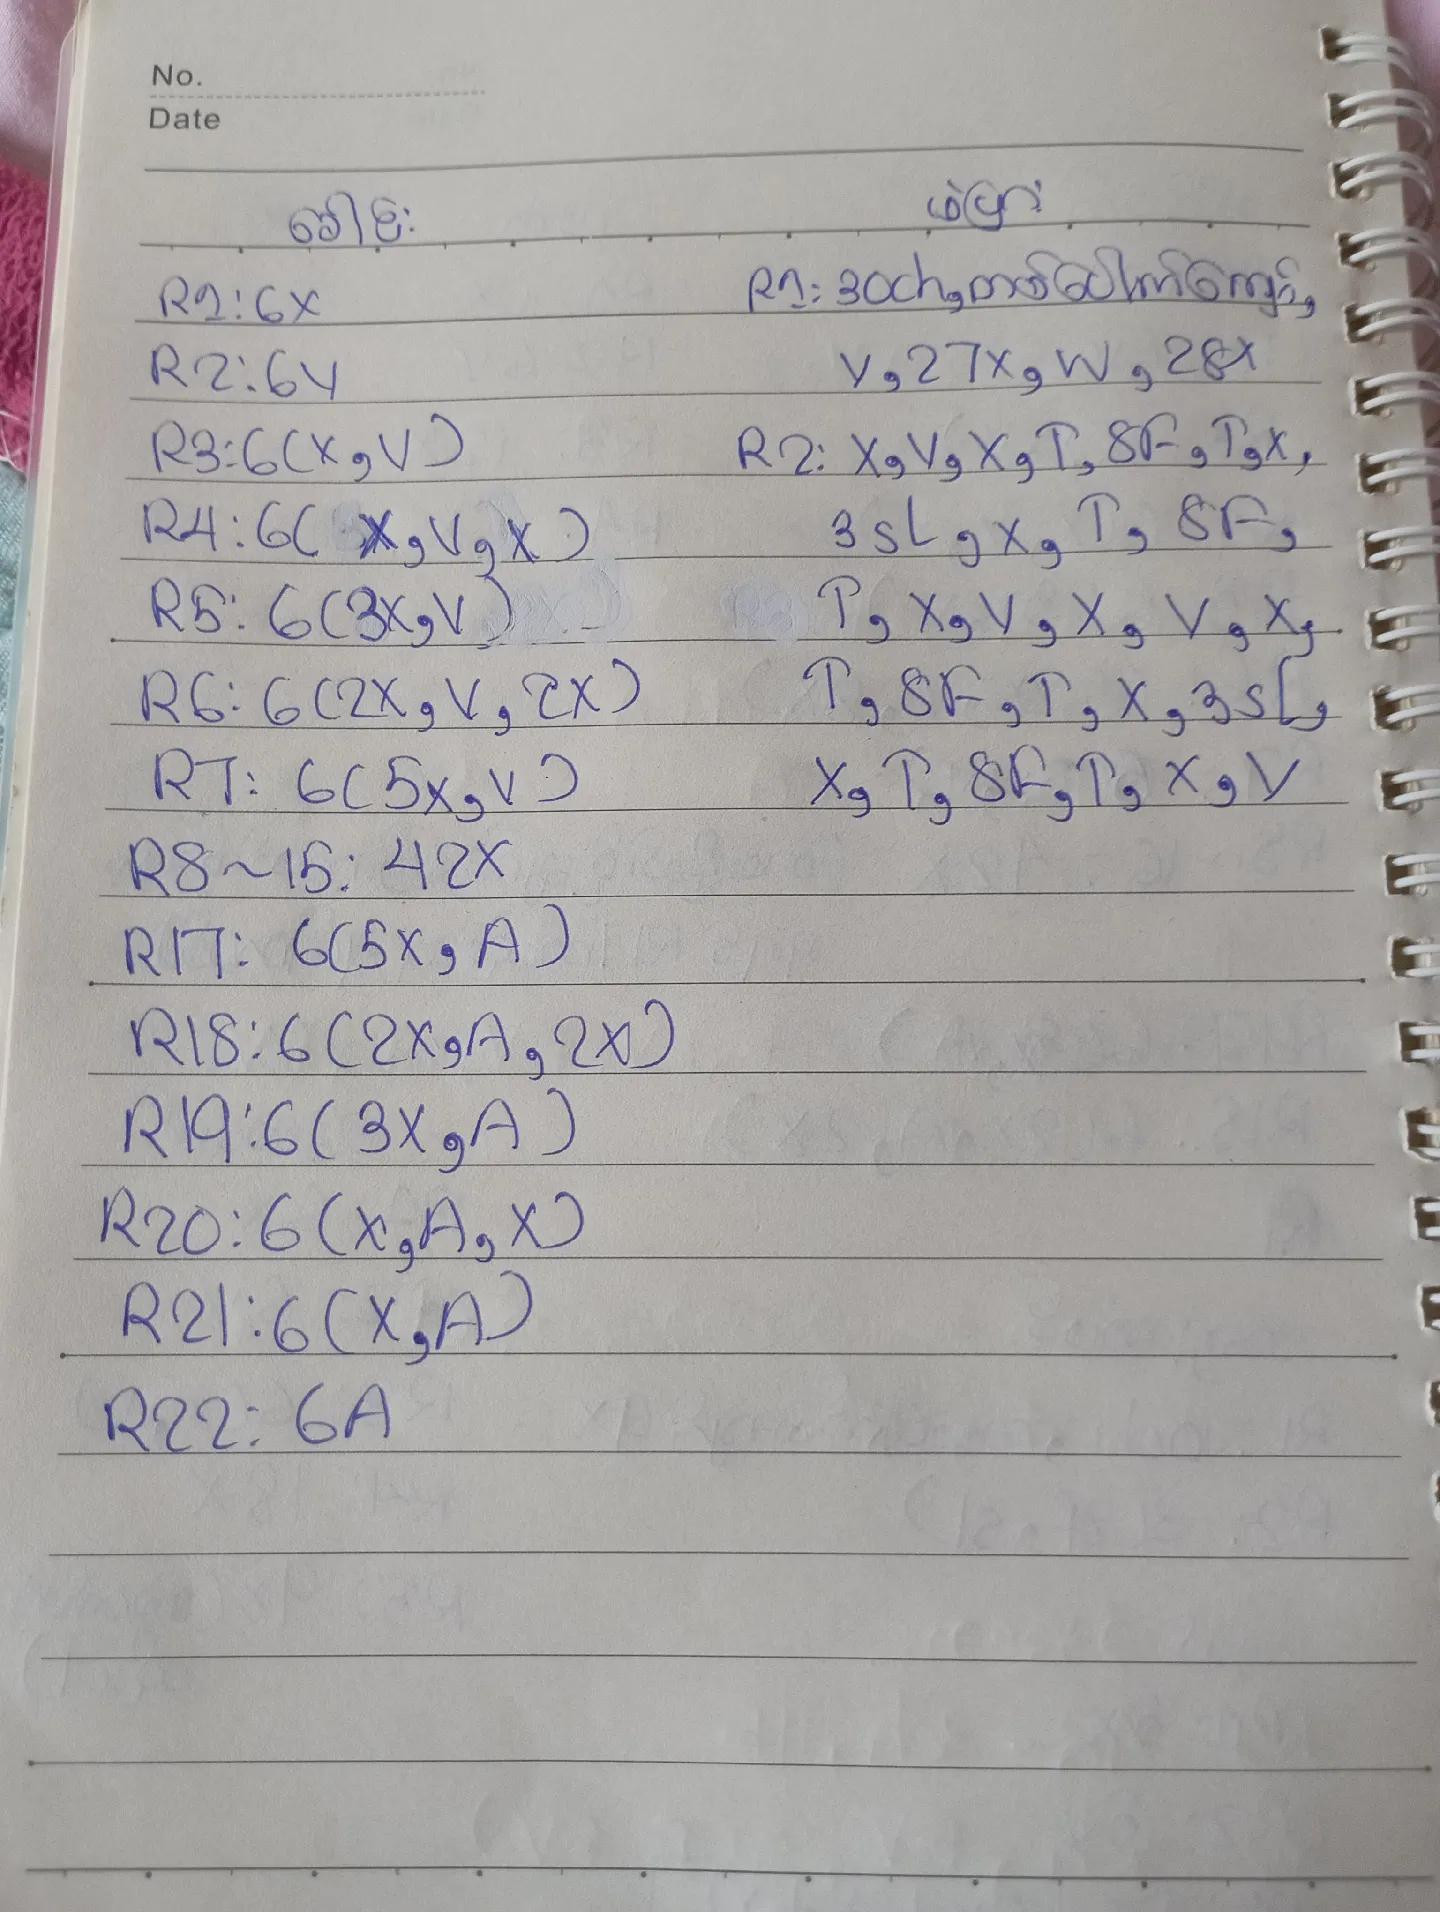 No.
Date
ခေါင်း
R1:6x
R2:6V
R3:6(x,V)
R4:6( x,V,x)
R5: 6(3x,V)
R6: 6(2x,V,2x)
R7: 6(5x,V)
R8~15: 42x
R17: 6(5x,A)
R18:6(2x,A,2x)
R19:6(3x,A)
R20:6(x,A,x)
R21:6(x,A)
R22: 6A
R1: 30ch,
V,27x,W,28x
R2: x,V,x,T,8F,T,x,
3sL,x,T,8F,
T,x,V,x,V,x,
T,8F,T,x,3sL,
x,T,8F,T,x,V